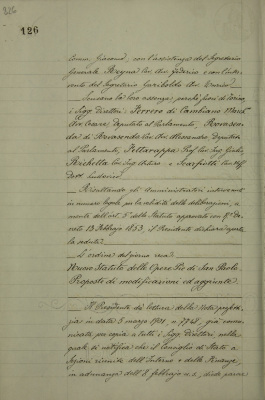 126
comm. Giacomo, con l'assistenza del Segretario
generale Regna Cav. Avv. Federico e coll'inter-
vento del Segretario Garibaldo Avv. Ennio
Scusano la loro assenza, perchè fuori di Torino,
i Sigg. Direttori: Ferrero di Cambiano March.
Avv. Cesare, Deputato al Parlamento, Rovasen-
da di Rovasenda Cav. Avv. Alessandro, Deputato
al Parlamento, Cav. Ing.
Cav. Ing. Cav. Uff.
Dott. Ludovico.
Risultando gli Amministratori intervenuti
in numero legale per la validità delle deliberazioni, a
mente dell'art. 5 dello Statuto approvato con R.o De-
creto 13 Febbraio 1853, il Presidente dichiara aperta
la seduta.
L'ordine del giorno reca:
Nuovo Statuto delle Opere Pie di San Paolo.
Proposte di modificazioni ed aggiunte.
Il Presidente dà lettura della Nota prefetti-
zia in data 5 marzo 1901, n. già comu-
nicata per copia a tutti i Sigg. Direttori, nella
quale si notifica che il Consiglio di Stato a
Sezioni riunite dell'Interno e delle Finanze,
in adunanza dell'8 febbraio u. s., diede parere